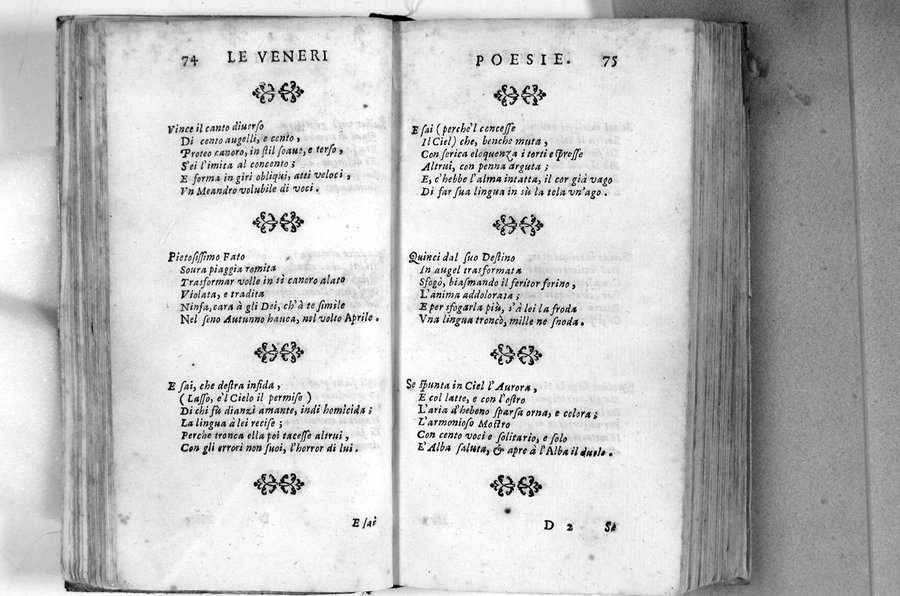 74 LE VENERI
Vince il canto diuerso
Di cento augelli, e cento,
Proteo canoro, in stil soaue, e terso,
S'ei l'imita al concento;
E ferma in giri obliqui, atti veloci,
Vn Meandro volubile di voci.
Pietosissimo Fato
Soura piaggia romita
Trasformar volle in sì canoro alato
Violata, e tradita
Ninfa, cara à gli Dei, ch'à te simile
Nel seno Autunno hauea, nel volto Aprile.
E sai, che destra infida,
(Lasso, e'l Cielo il permise)
Di chi fù dianzi amante, indi homicida;
La lingua à lei recise;
Perche tronca ella poi tacesse altrui,
Con gli errori non suoi, l'horror di lui.
E sai
POESIE. 75
E sai (perche'l concesse
Il Ciel) che, benche muta,
Con serica eloquenza i torti espresse
Altrui, con penna arguta;
E, c'hebbe l'alma intatta, il cor già vago
Di far sua lingua in sù la tela vn'ago.
Quinci dal suo Destino
In augel trasformata
Sfogò, biasmando il feritor ferino,
L'anima addolorata;
E per sfogarla più, s'à lei la froda
Vna lingua troncò, mille ne snoda.
Se spunta in Ciel l'Aurora,
E col latte, e con l'ostro
L'aria d'hebeno sparsa orna, e colora;
L'armonioso Mostro
Con cento voci e solitario, e solo
E'Alba saluta, & apre à l'Alba il duolo.
D 2 Se